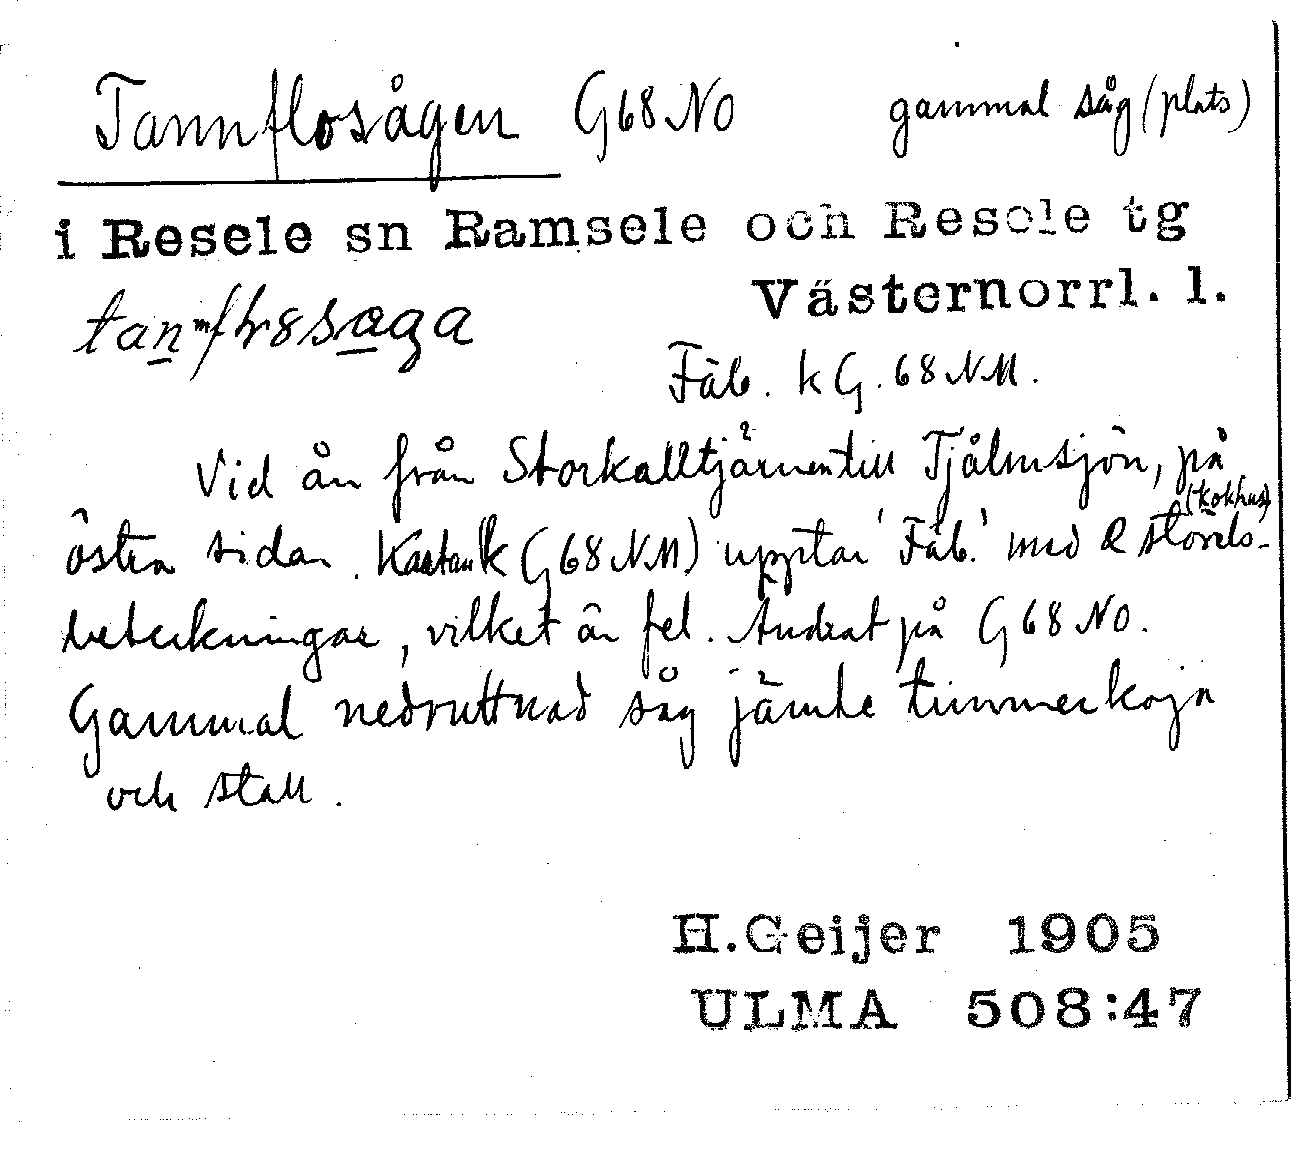 Tannflosågen G68NO gammal såg (plats)
i Resele sn Ramsele och Resele tg
Västernorrl. l.
Fäb. k G. 68 NM.
Vid ån från Storkalltjärnen till Tjålmsjön, på
östra sidan. Kartan k (G 68 NM) upptar 'Fäb.' med 2
(kokhus)
beteckningar, vilket är fel. Ändrat på G 68 NO.
Gammal nedruttnad såg jämte timmerkoja
och stall.
H.Geijer 1905
ULMA 508:47